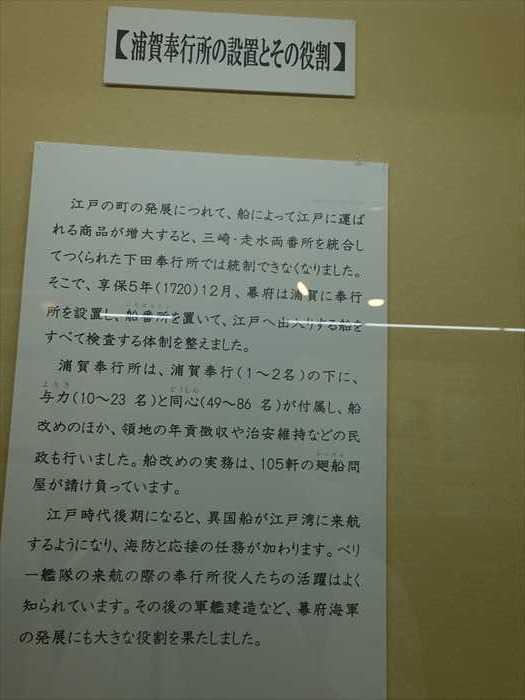 【浦賀奉行所の設置とその役割】
江戸の町の発展につれて、船によって江戸に運ば
れる商品が増大すると、三崎・走水両番所を統合し
てつくられた下田奉行所では統制できなくなりました。
そこで、享保5年(1720)12月、幕府は浦賀に奉行
所を設置し、船番所を置いて、江戸へ出入りする船を
すべて検査する体制を整えました。
浦賀奉行所は、浦賀奉行(1～2名)の下に、
与力(10～23 名)と同心(49～86 名)が付属し、船
改めのほか、領地の年貢徴収や治安維持などの民
政も行いました。船改めの実務は、105軒の廻船問
屋が請け負っています。
江戸時代後期になると、異国船が江戸湾に来航
するようになり、海防と応接の任務が加わります。ペリ
ー艦隊の来航の際の奉行所役人たちの活躍はよく
知られています。その後の軍艦建造など、幕府海軍
の発展にも大きな役割を果たしました。